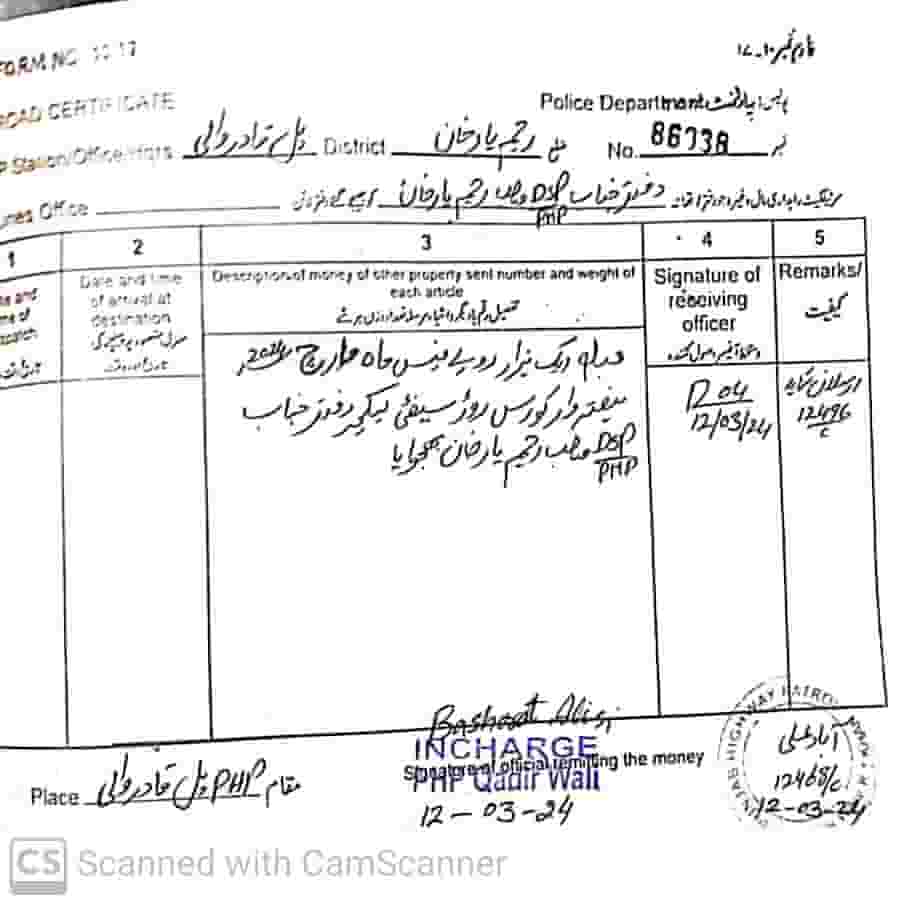 FORM NO 10.17
فارم نمبر ۱۰۔۱۷
ROAD CERTIFICATE
Police Department پولیس ڈیپارٹمنٹ
Station/Office/Hqrs پل قادر والی District رحیم یار خان ضلع No. 86738 نمبر
Lines Office دفتر جناب DSP/PHP صاحب رحیم یار خان
1 2 3 4 5
Date and time of arrival at destination
Description of money of other property sent number and weight of
each article
Signature of
receiving
officer
Remarks/
کیفیت
ایک ہزار روپے میس ماہ مارچ 2024ء
ہفتہ وار کورس روڈ سیفٹی لیکچر دفتر جناب
DSP/PHP صاحب رحیم یار خان بھجوایا
D 04
12/03/24
ارسلان شاہد
12496/C
Basharat Ali SI
INCHARGE
Signature of official remitting the money
PHP Qadir Wali
12-03-24
Place پل قادر والی PHP مقام
PUNJAB HIGHWAY PATROL
12468/C
12-03-24
CS Scanned with CamScanner